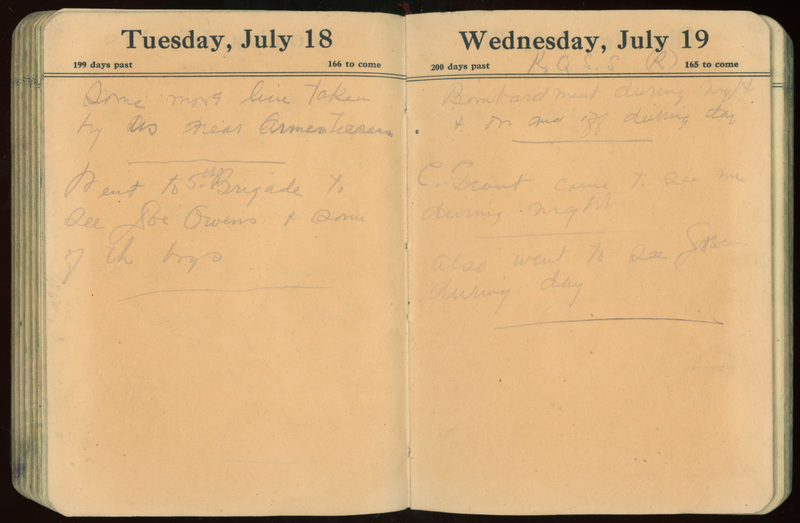 Tuesday, July 18
199 days past 166 to come
Some more line taken
by us near Armentieres
Went to 5th Brigade to
see Joe Owens & some
of the boys
Wednesday, July 19
200 days past 165 to come
R, Q S. S (R)
Bombardment during night
& on and off during day
C. Grant came to see me
during night
also went to see
during day